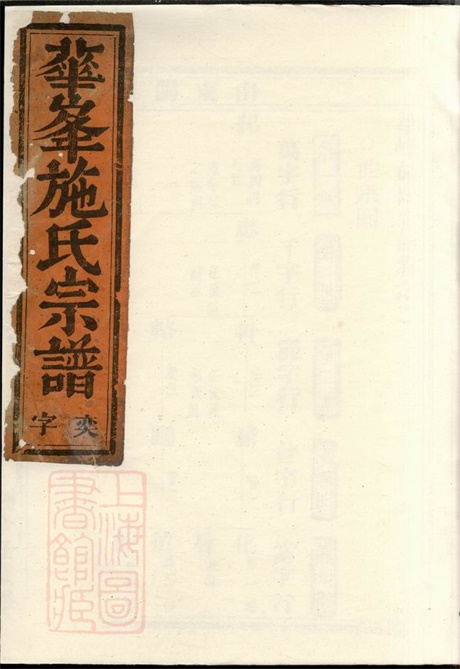 華峯施氏宗譜
奕字
上海圖
書館藏